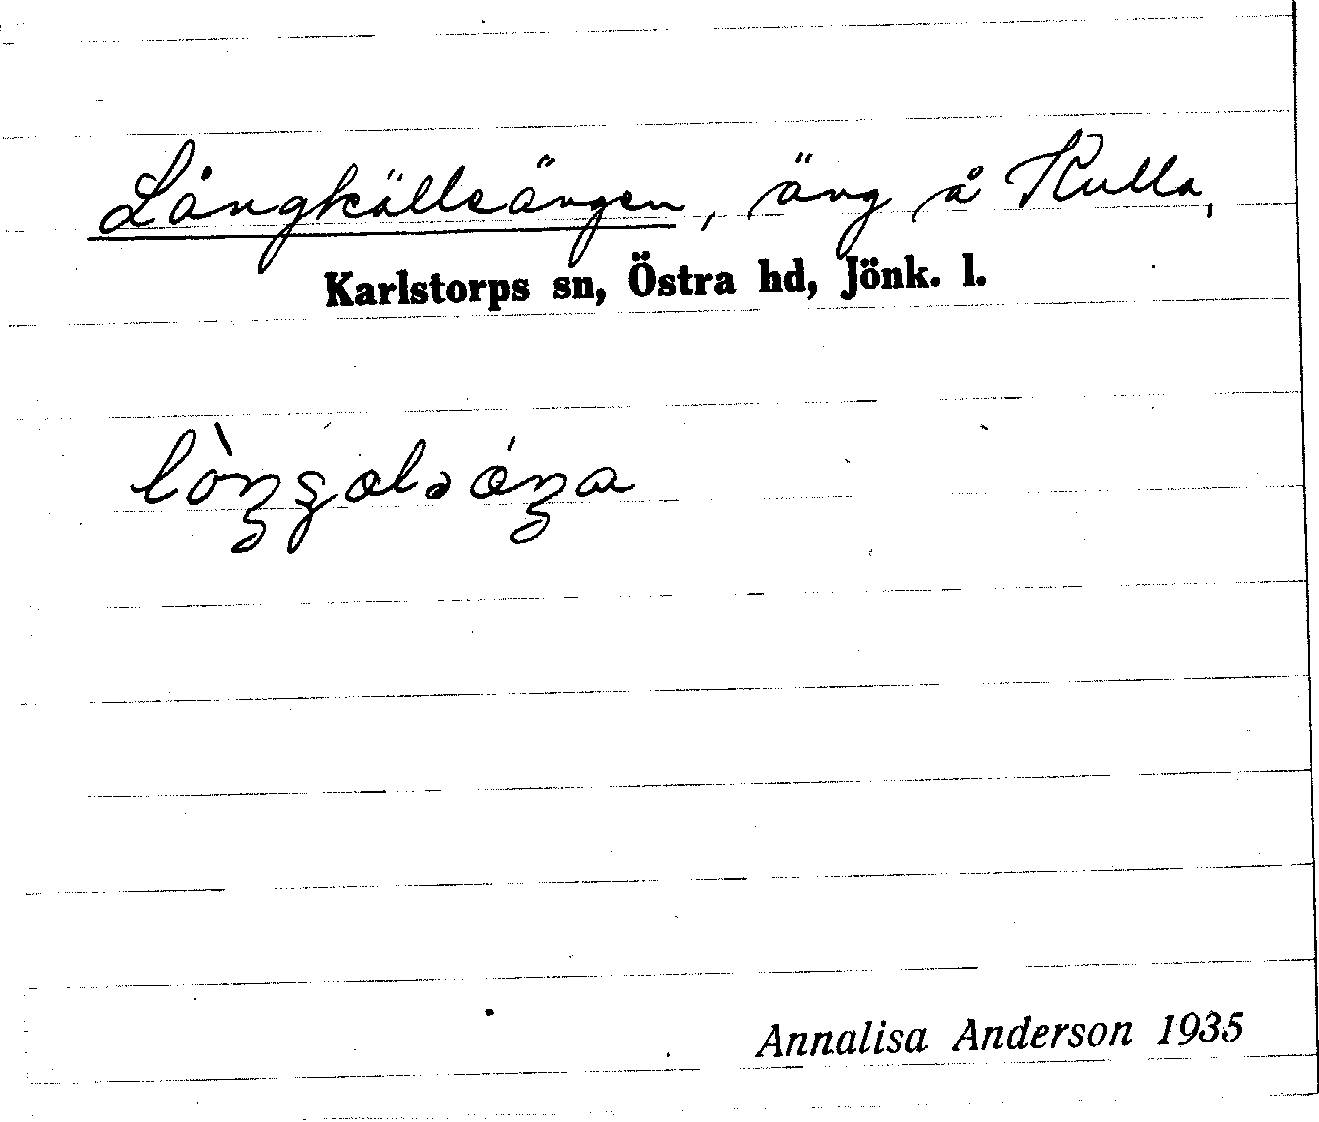 Långkälleängen, äng å Kulla,
Karlstorps sn, Östra hd, Jönk. l.
Annalisa Anderson 1935